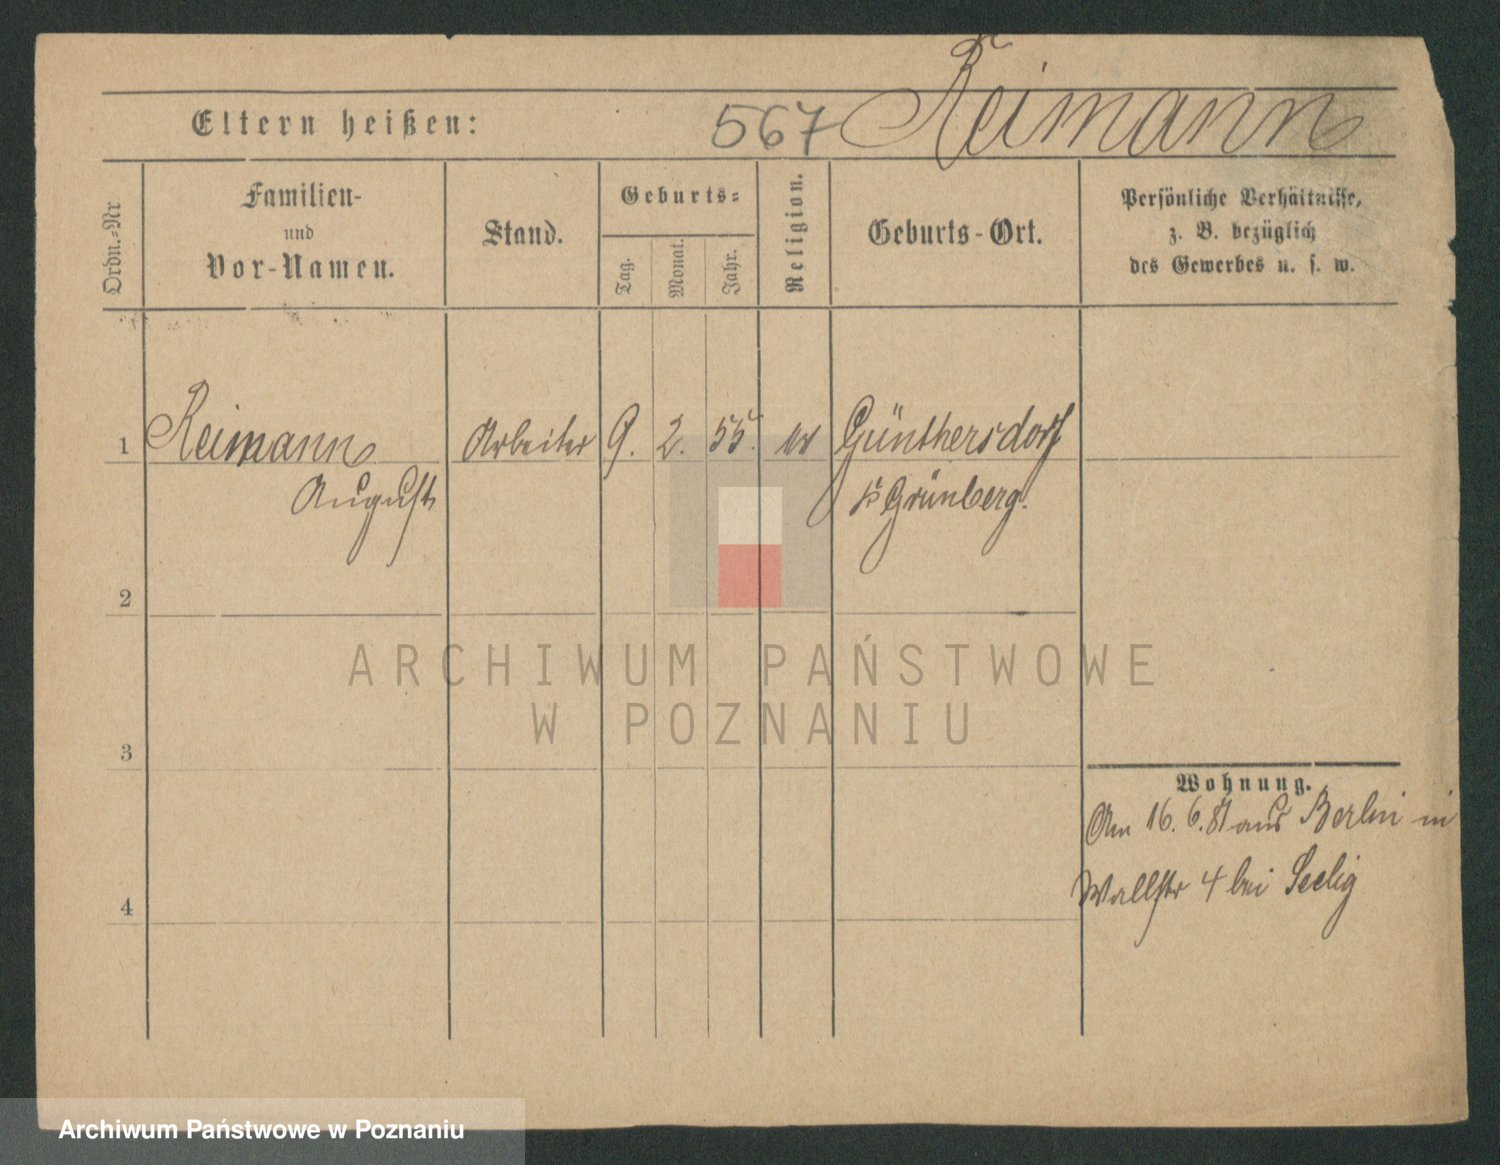 Eltern heißen: 567 Reimann
Ordn.-Nr.
Familien-
und
Vor-Namen.
Stand.
Geburts-
Tag.
Monat.
Jahr.
Religion.
Geburts-Ort.
Persönliche Verhältnisse,
z. B. bezüglich
des Gewerbes u. s. w.
1 Reimann Arbeiter 9. 2. 55. Günthersdorf
August Grünberg.
2
3
4
Wohnung.
Am 16. 6. 81 aus Berlin in
Wallstr 4 bei Seelig
ARCHIWUM PAŃSTWOWE
W POZNANIU
Archiwum Państwowe w Poznaniu